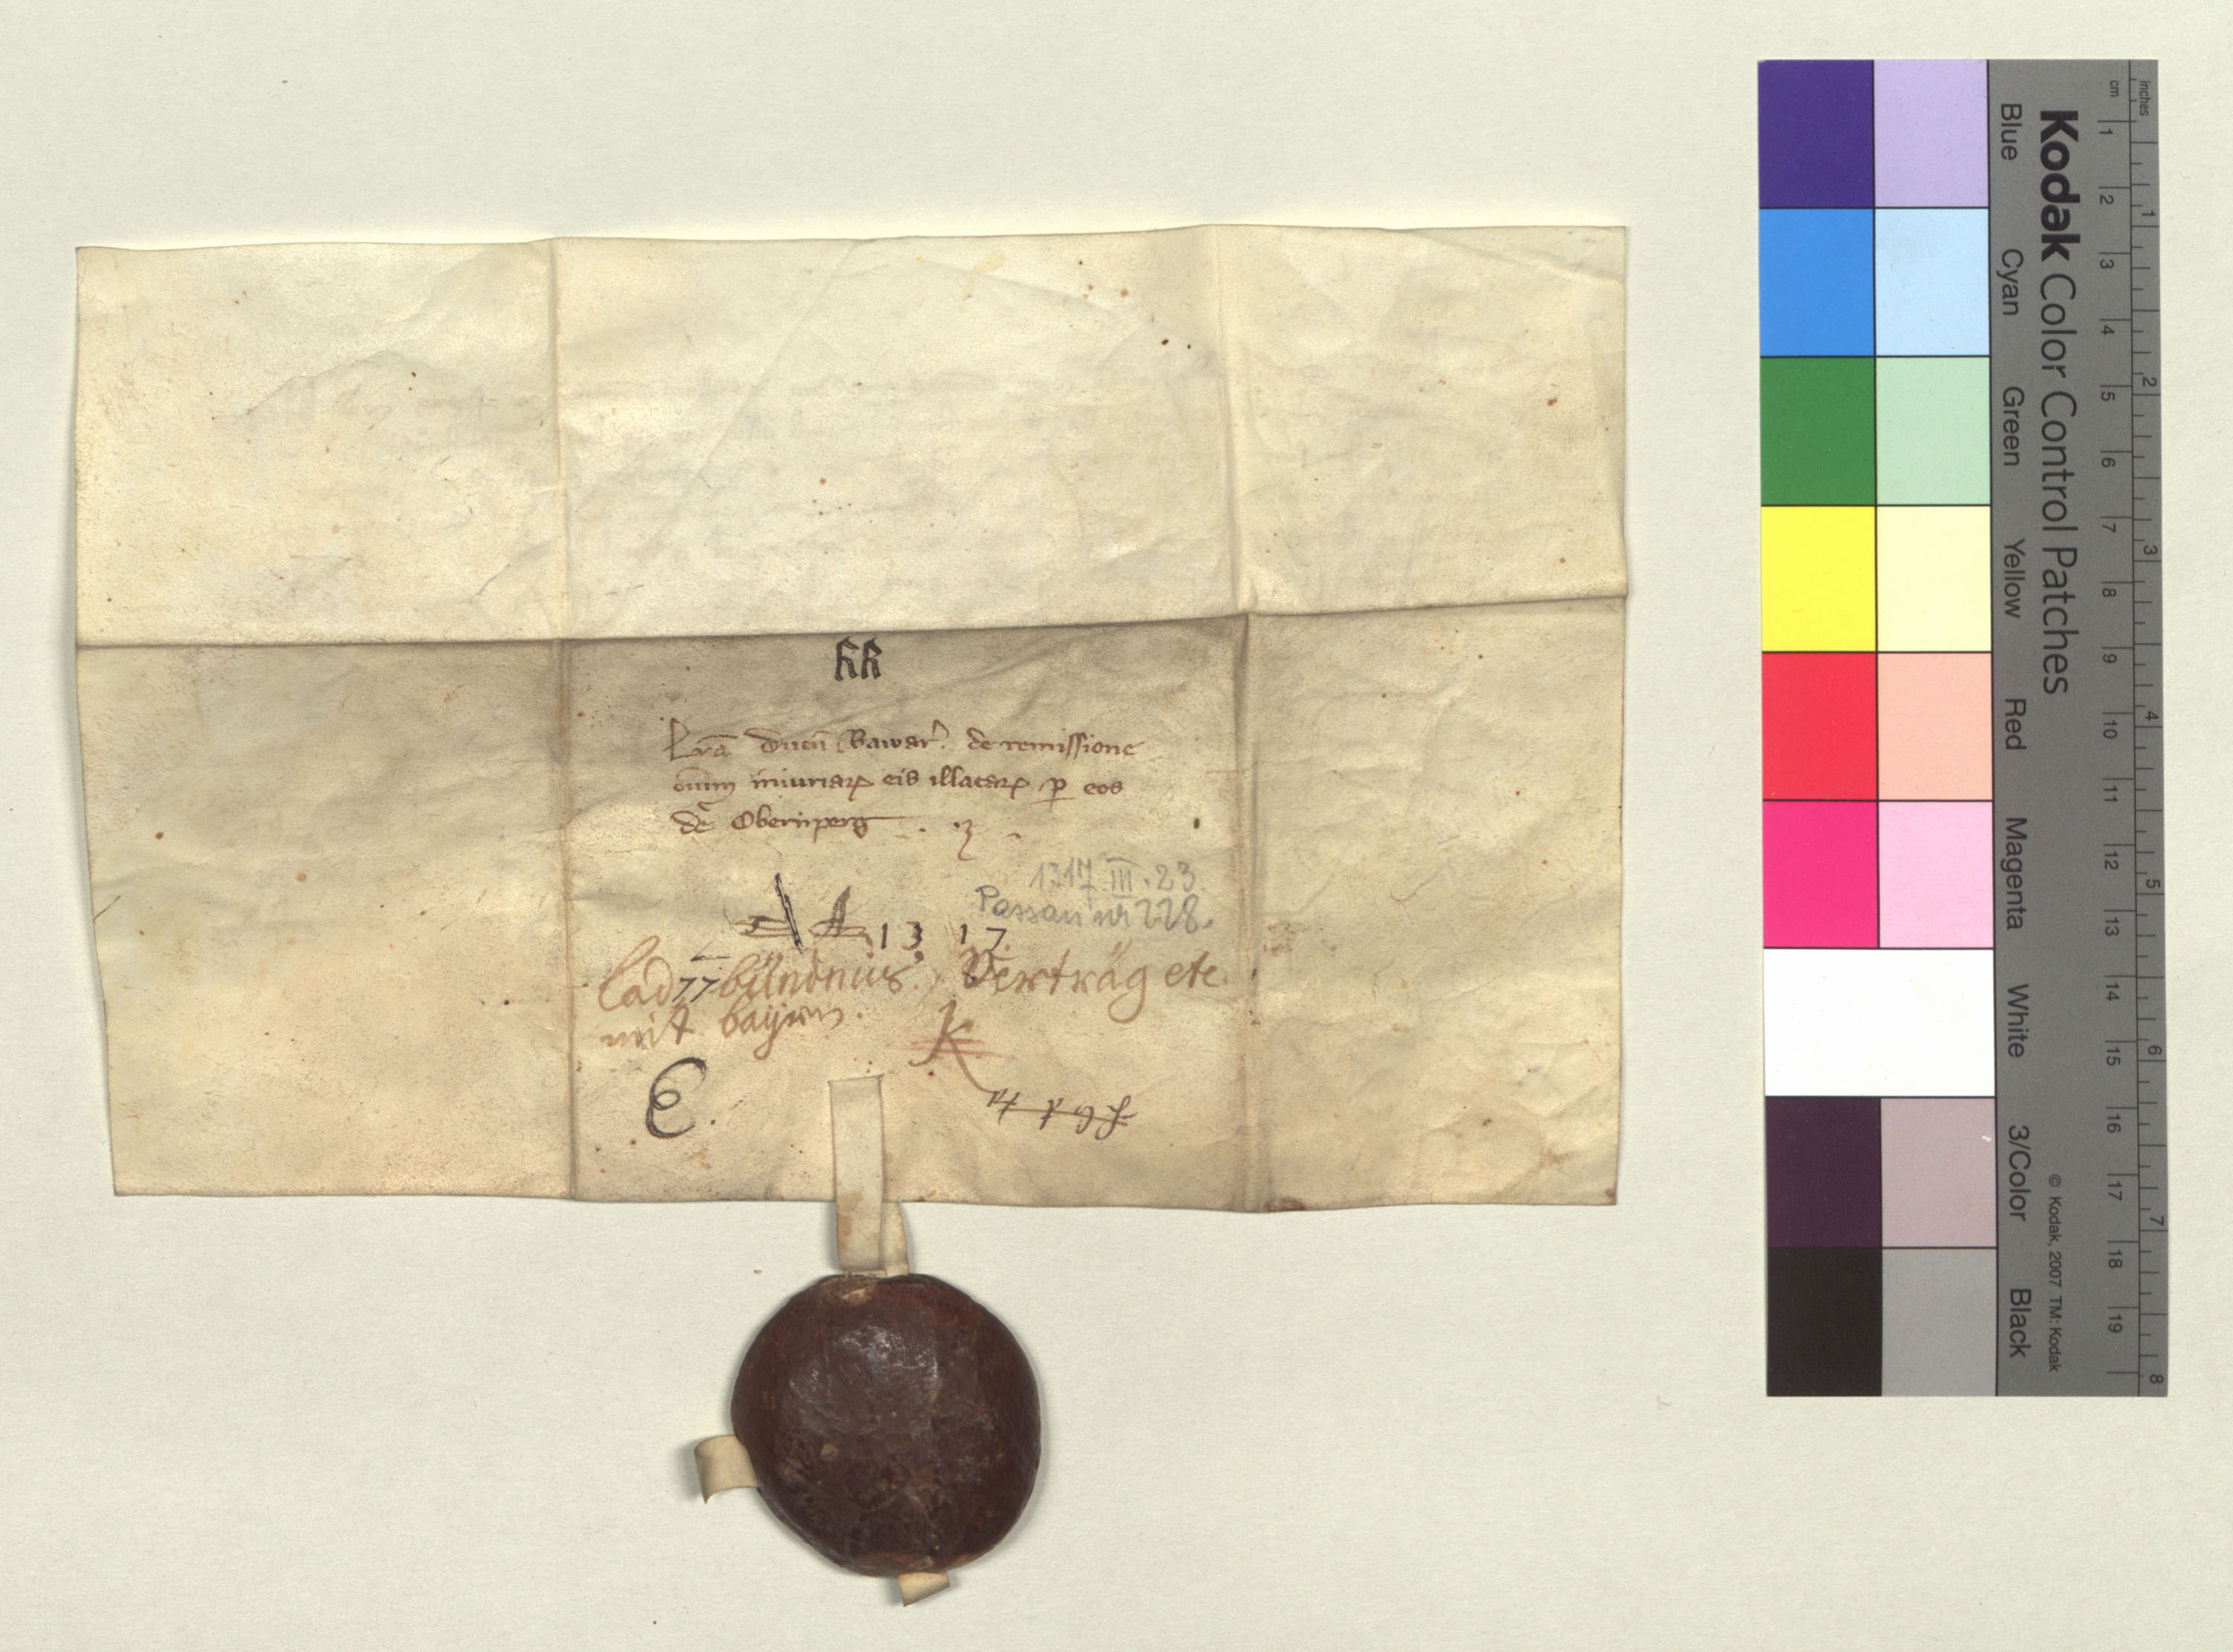 hh
Lrā ducū Bawar̄ de remissione
oīm iniuriaꝝ eis illataꝝ ꝑ eos
de Obernperg
1317 III. 23.
Passau nr 228.
A 1317
Lad 77 bündnus, Verträg etc.
mit bayrn.
K
E.
Kodak Color Control Patches
Blue Cyan Green Yellow Red Magenta White 3/Color Black
© Kodak, 2007 TM: Kodak
cm 1 2 3 4 5 6 7 8 9 10 11 12 13 14 15 16 17 18 19
inches 1 2 3 4 5 6 7 8